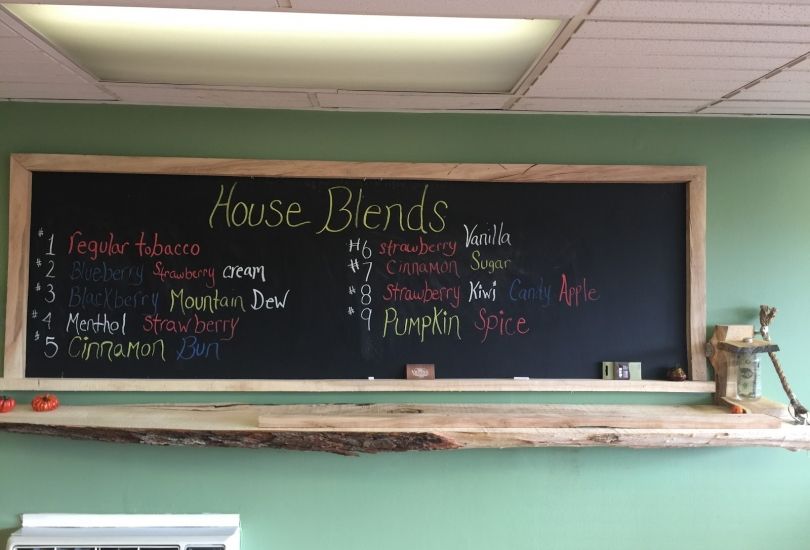 House Blends
#1 regular tobacco
#2 Blueberry Strawberry cream
#3 Blackberry Mountain Dew
#4 Menthol strawberry
#5 Cinnamon Bun
#6 strawberry Vanilla
#7 Cinnamon Sugar
#8 Strawberry Kiwi Candy Apple
#9 Pumpkin Spice